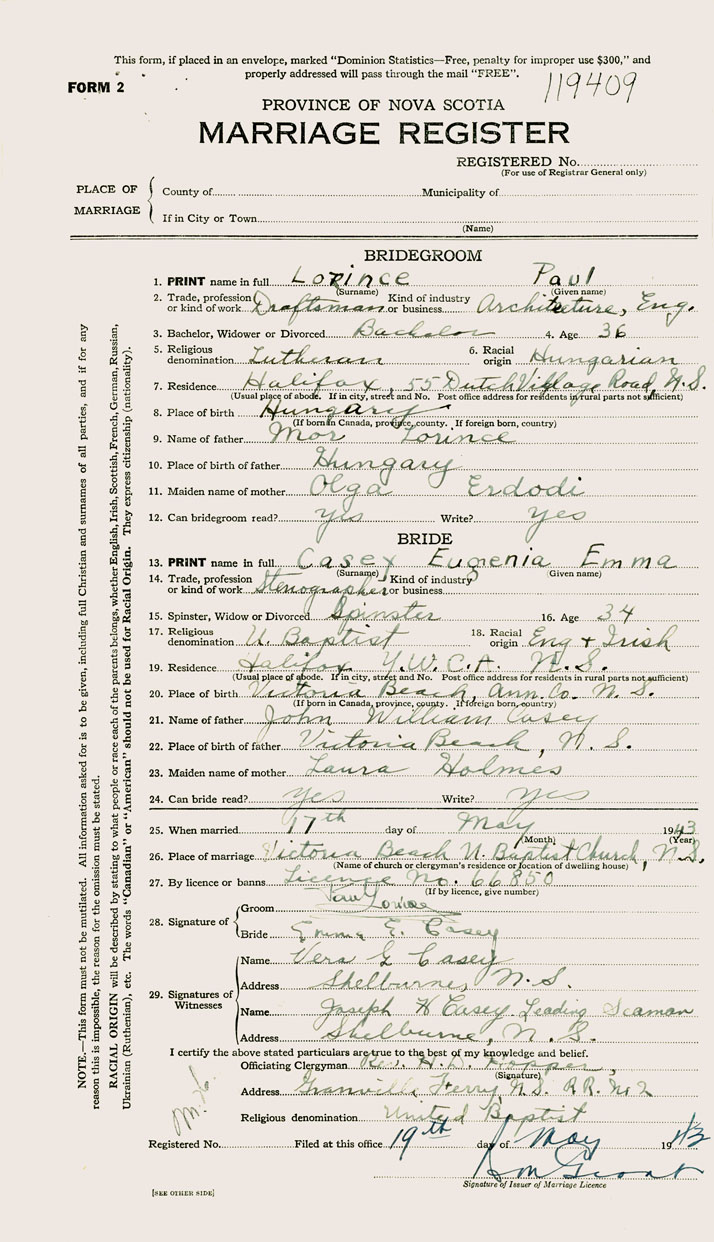 This form, if placed in an envelope, marked "Dominion Statistics—Free, penalty for improper use $300," and
properly addressed will pass through the mail "FREE".
FORM 2
119409
PROVINCE OF NOVA SCOTIA
MARRIAGE REGISTER
REGISTERED No.
(For use of Registrar General only)
PLACE OF MARRIAGE
County of Municipality of
If in City or Town
(Name)
BRIDEGROOM
1. PRINT name in full Lorince Paul
(Surname) (Given name)
2. Trade, profession or kind of work Draftsman Kind of industry or business Architecture, Eng.
3. Bachelor, Widower or Divorced Bachelor 4. Age 36
5. Religious denomination Lutheran 6. Racial origin Hungarian
7. Residence Halifax, 55 Dutch Village Road, N.S.
(Usual place of abode. If in city, street and No. Post office address for residents in rural parts not sufficient)
8. Place of birth Hungary
(If born in Canada, province, county. If foreign born, country)
9. Name of father Mor Lorince
10. Place of birth of father Hungary
11. Maiden name of mother Olga Erdodi
12. Can bridegroom read? yes Write? yes
BRIDE
13. PRINT name in full Casey Eugenia Emma
(Surname) (Given name)
14. Trade, profession or kind of work Stenographer Kind of industry or business
15. Spinster, Widow or Divorced Spinster 16. Age 34
17. Religious denomination U. Baptist 18. Racial origin Eng + Irish
19. Residence Halifax Y.W.C.A. N.S.
(Usual place of abode. If in city, street and No. Post office address for residents in rural parts not sufficient)
20. Place of birth Victoria Beach, Ann. Co. N. S.
(If born in Canada, province, county. If foreign born, country)
21. Name of father John William Casey
22. Place of birth of father Victoria Beach, N. S.
23. Maiden name of mother Laura Holmes
24. Can bride read? yes Write? yes
25. When married 17th day of May 1943
(Month) (Year)
26. Place of marriage Victoria Beach U. Baptist Church, N.S.
(Name of church or clergyman's residence or location of dwelling house)
27. By licence or banns Licence No. 66850
(If by licence, give number)
28. Signature of
Groom Paul Lorince
Bride Emma E. Casey
29. Signatures of Witnesses
Name Vera G Casey
Address Shelburne, N.S.
Name Joseph H Casey Leading Seaman
Address Shelburne, N. S.
I certify the above stated particulars are true to the best of my knowledge and belief.
Officiating Clergyman Rev. H. D. Hopper,
(Signature)
Address Granville Ferry, N.S. R.R. No 2
Religious denomination United Baptist
Registered No. Filed at this office 19th day of May 1943
Signature of Issuer of Marriage Licence
[SEE OTHER SIDE]
NOTE.—This form must not be mutilated. All information asked for is to be given, including full Christian and surnames of all parties, and if for any
reason this is impossible, the reason for the omission must be stated.
RACIAL ORIGIN will be described by stating to what people or race each of the parents belongs, whether English, Irish, Scottish, French, German, Russian,
Ukrainian (Ruthenian), etc. The words "Canadian" or "American" should not be used for Racial Origin. They express citizenship (nationality).